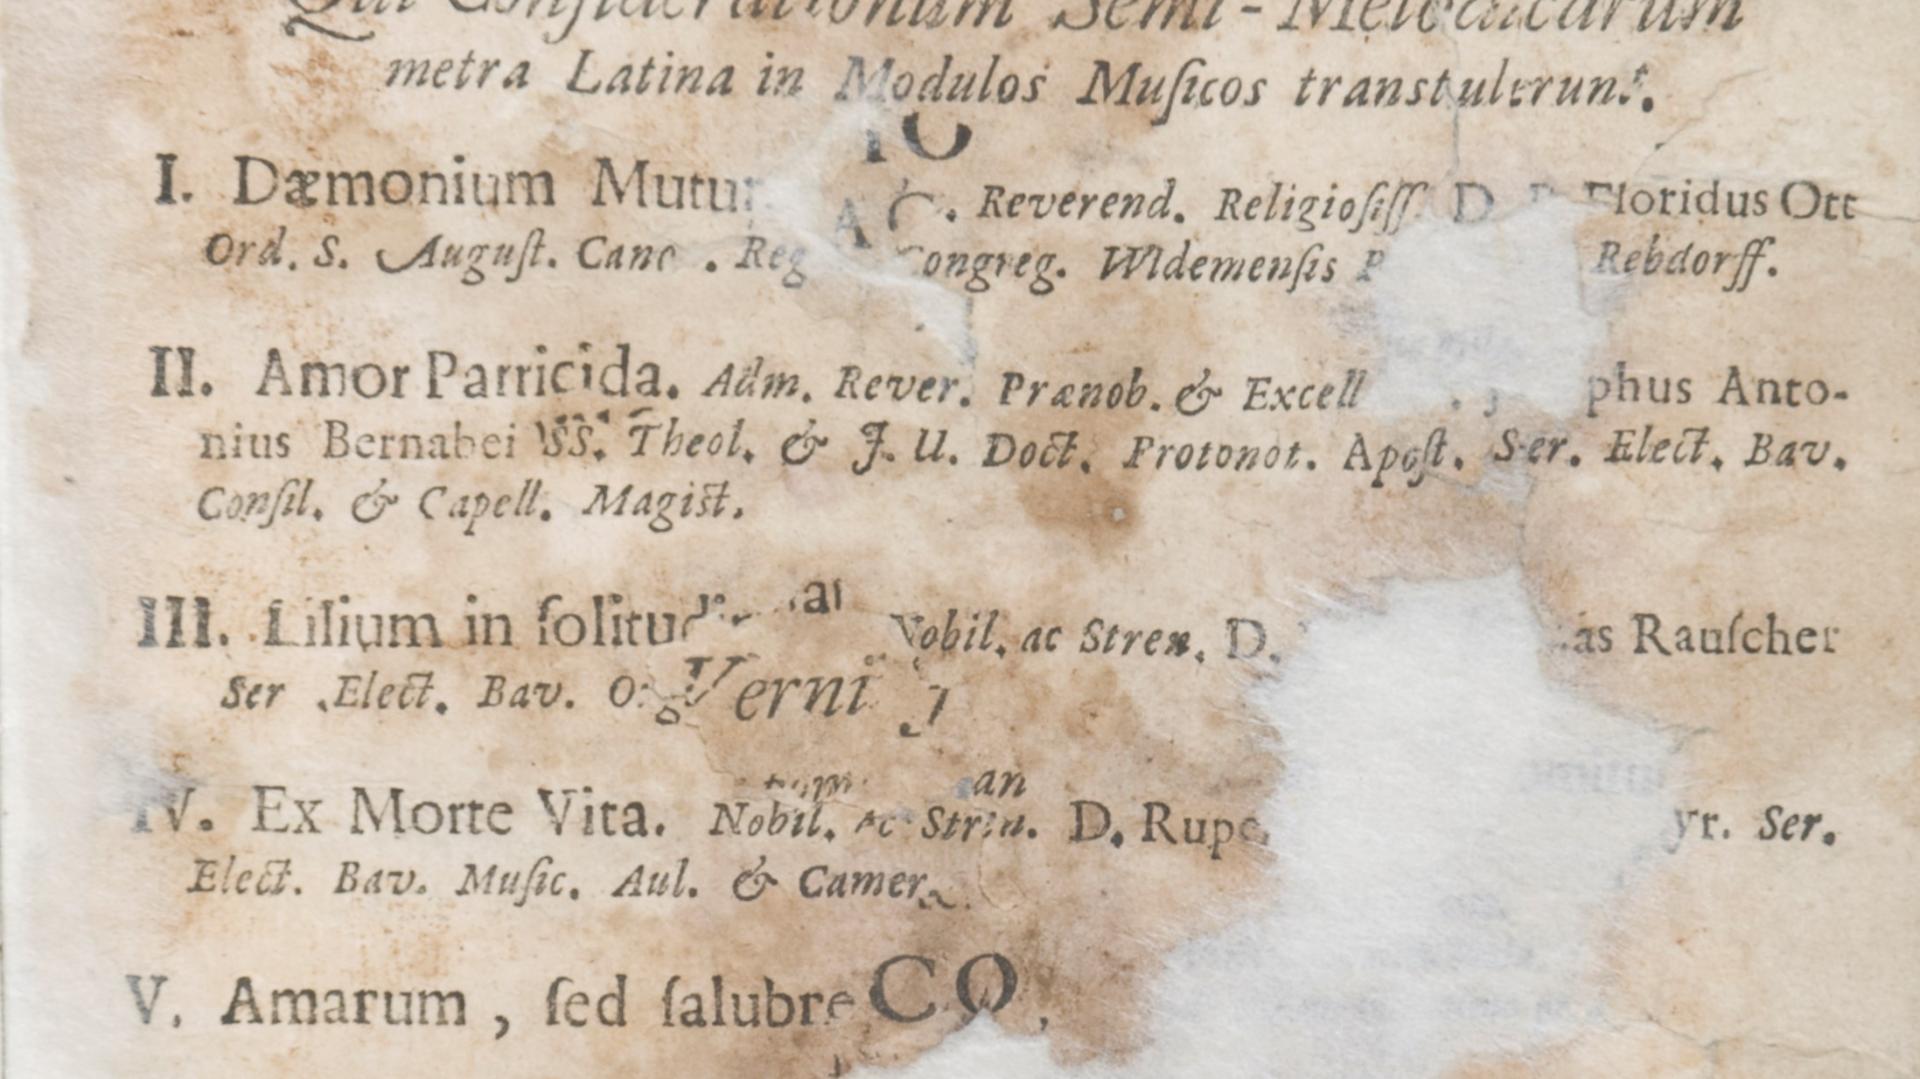 Qui Conſiderationum Semi-Melodicarum
metra Latina in Modulos Muſicos transtulerunt.
I. Dæmonium Reverend. Religioſiſſ. D. Floridus Ott
Ord. S. Auguſt. Reg ongreg. Widemenſis Rebdorff.
II. Amor Parricida. Adm. Rever. Prænob. & Excell phus Anto-
nius Bernabei SS. Theol. & J. U. Doct. Protonot. Apoſt. Ser. Elect. Bav.
Conſil. & Capell. Magiſt.
III. Lilium in ſolitud Nobil. ac Stren. D. as Rauſcher
Ser. Elect. Bav.
Verni
an
IV. Ex Morte Vita. Nobil. ac Stren. D. Rupe yr. Ser.
Elect. Bav. Muſic. Aul. & Camer.
V. Amarum, ſed ſalubre CO